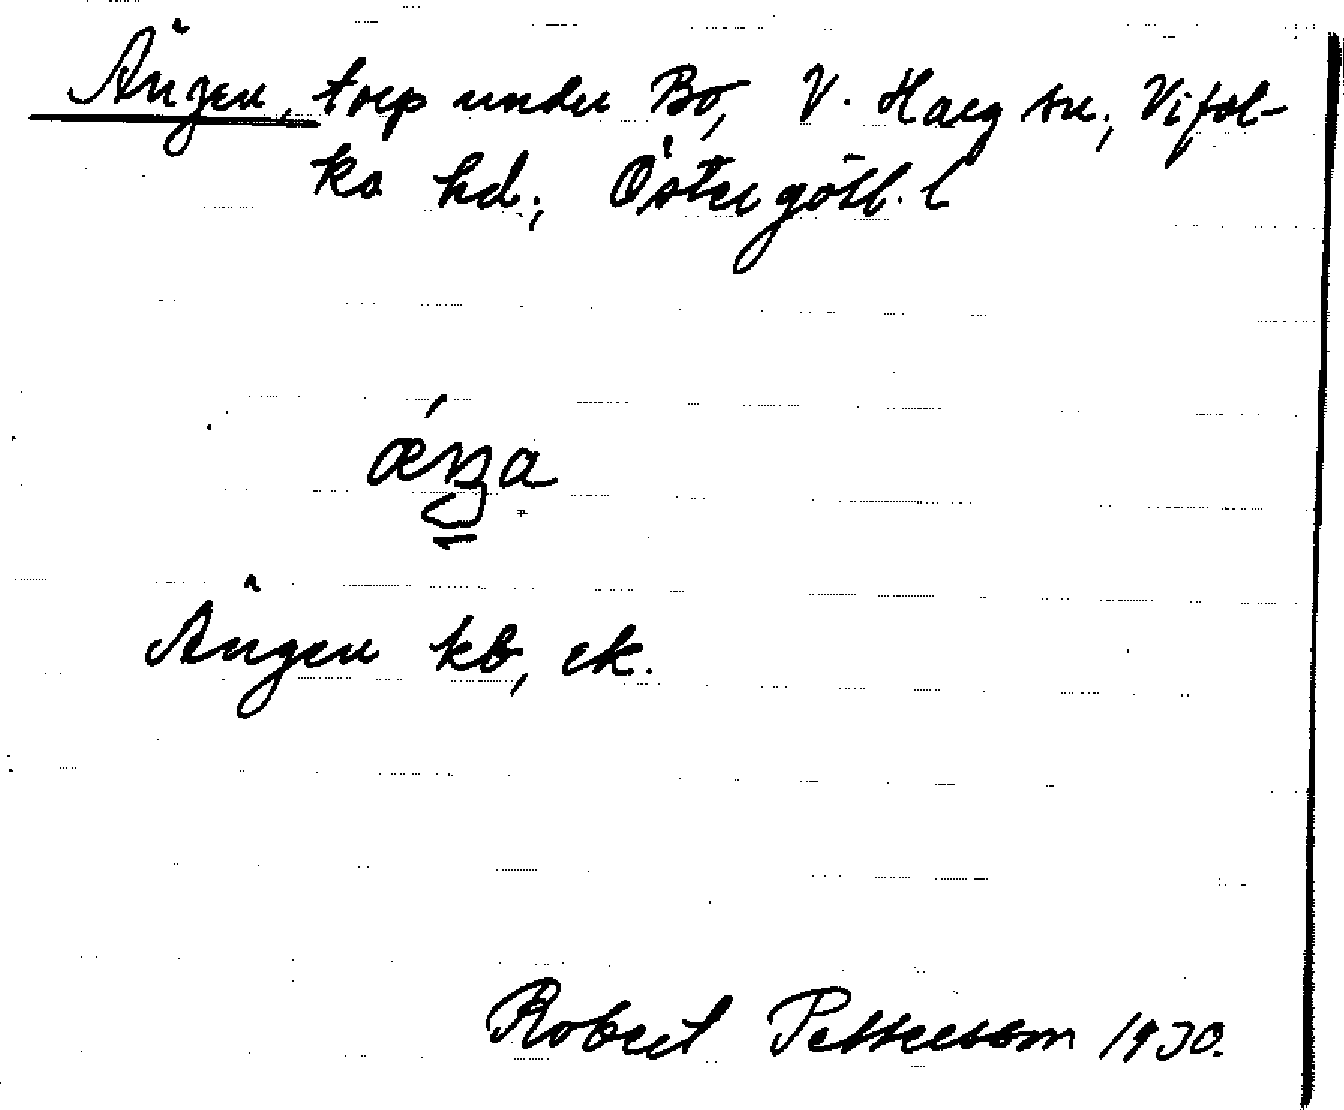 Ängen, torp under Bo, V. Harg sn., Vifol-
ka hd., Östergötl. l
Ängen kb, ek.
Robert Pettersson 1930.